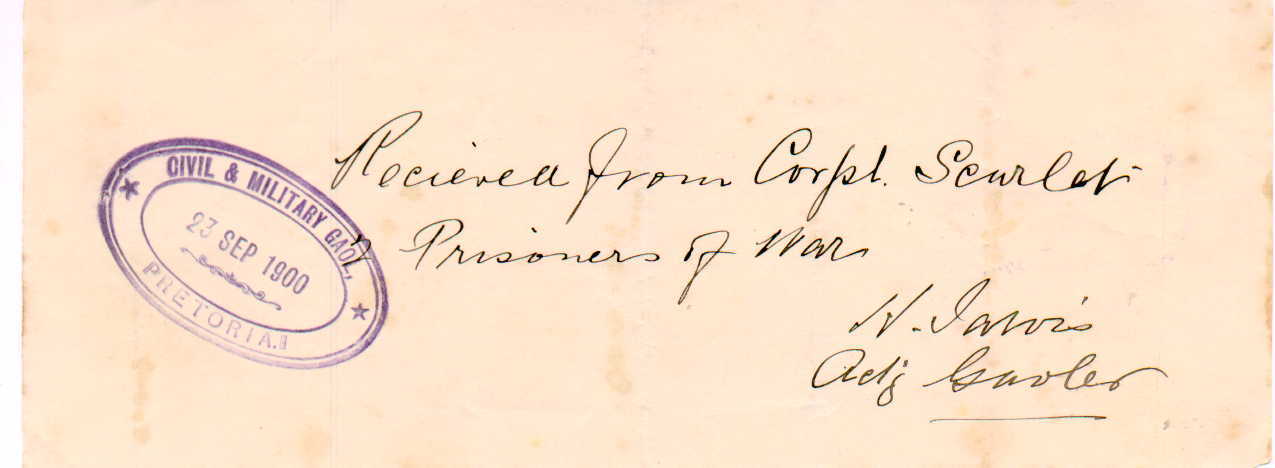 CIVIL & MILITARY GAOL,
23 SEP 1900
PRETORIA.
Recieved from Corpl. Scarlet
2 Prisoners of War
H. Jarvis
Actg Gaoler